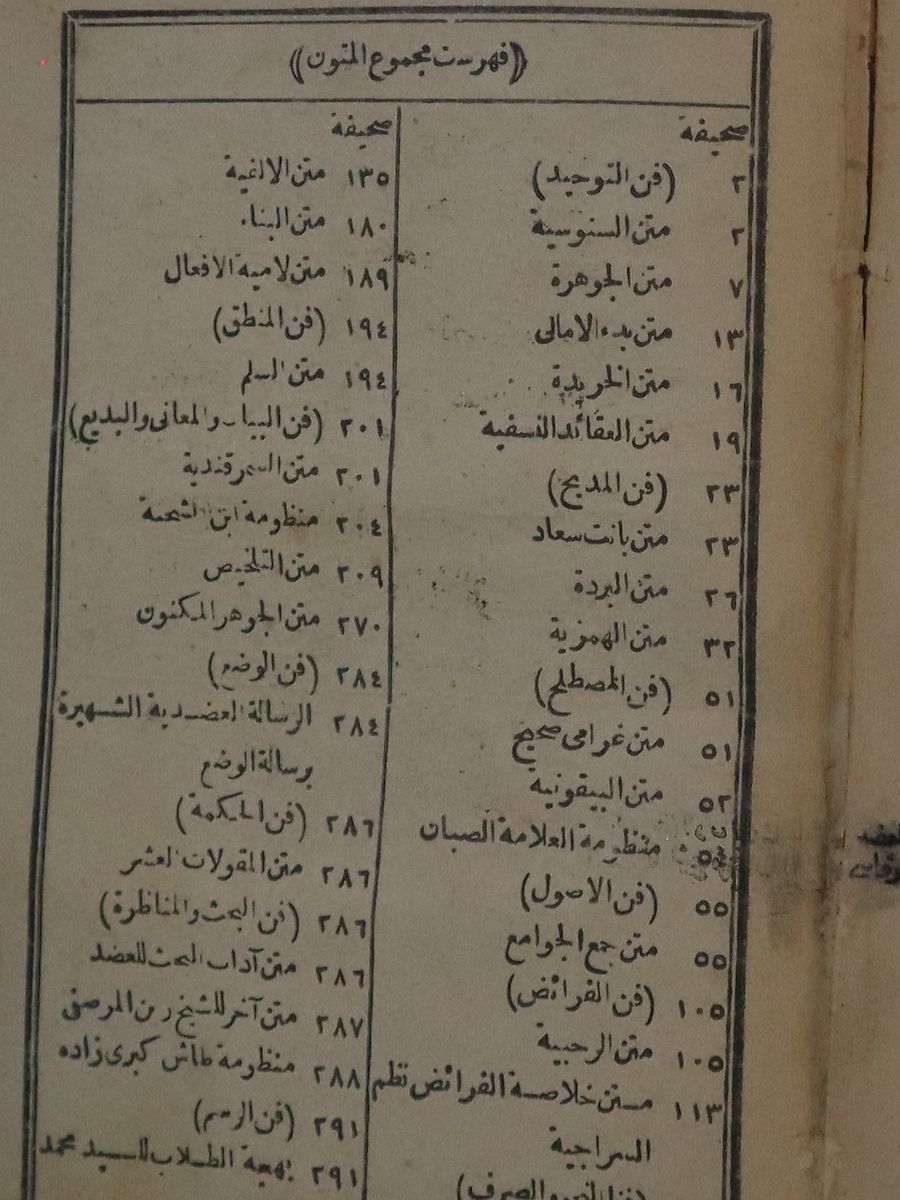 ﴿فهرست مجموع المتون﴾
صحيفة
٢ (فن التوحيد)
٢ متن السنوسية
٧ متن الجوهرة
١٣ متن بدء الامالى
١٦ متن الخريدة
١٩ متن العقائد النسفية
٢٣ (فن المديح)
٢٣ متن بانت سعاد
٢٦ متن البردة
٣٢ متن الهمزية
٥١ (فن المصطلح)
٥١ متن غرامى صحيح
٥٢ متن البيقونية
٥٤ منظومة العلامة الصبان
٥٥ (فن الاصول)
٥٥ متن جمع الجوامع
١٠٥ (فن الفرائض)
١٠٥ متن الرحبية
١١٣ متن خلاصة الفرائض نظم
السراجية
صحيفة
١٣٥ متن الالفية
١٨٠ متن البناء
١٨٩ متن لامية الافعال
١٩٤ (فن المنطق)
١٩٤ متن السلم
٢٠١ (فن البيان والمعانى والبديع)
٢٠١ متن السمرقندية
٢٠٤ منظومة ابن الشحنة
٢٠٩ متن التلخيص
٢٧٠ متن الجوهر المكنون
٢٨٤ (فن الوضع)
٢٨٤ الرسالة العضدية الشهيرة
برسالة الوضع
٢٨٦ (فن الحكمة)
٢٨٦ متن المقولات العشر
٢٨٦ (فن البحث والمناظرة)
٢٨٦ متن آداب البحث للعضد
٢٨٧ متن آخر للشيخ زين المرصفى
٢٨٨ منظومة طاش كبرى زاده
٢٩١ (فن الرسم)
٢٩١ بهجة الطلاب للسيد محمد